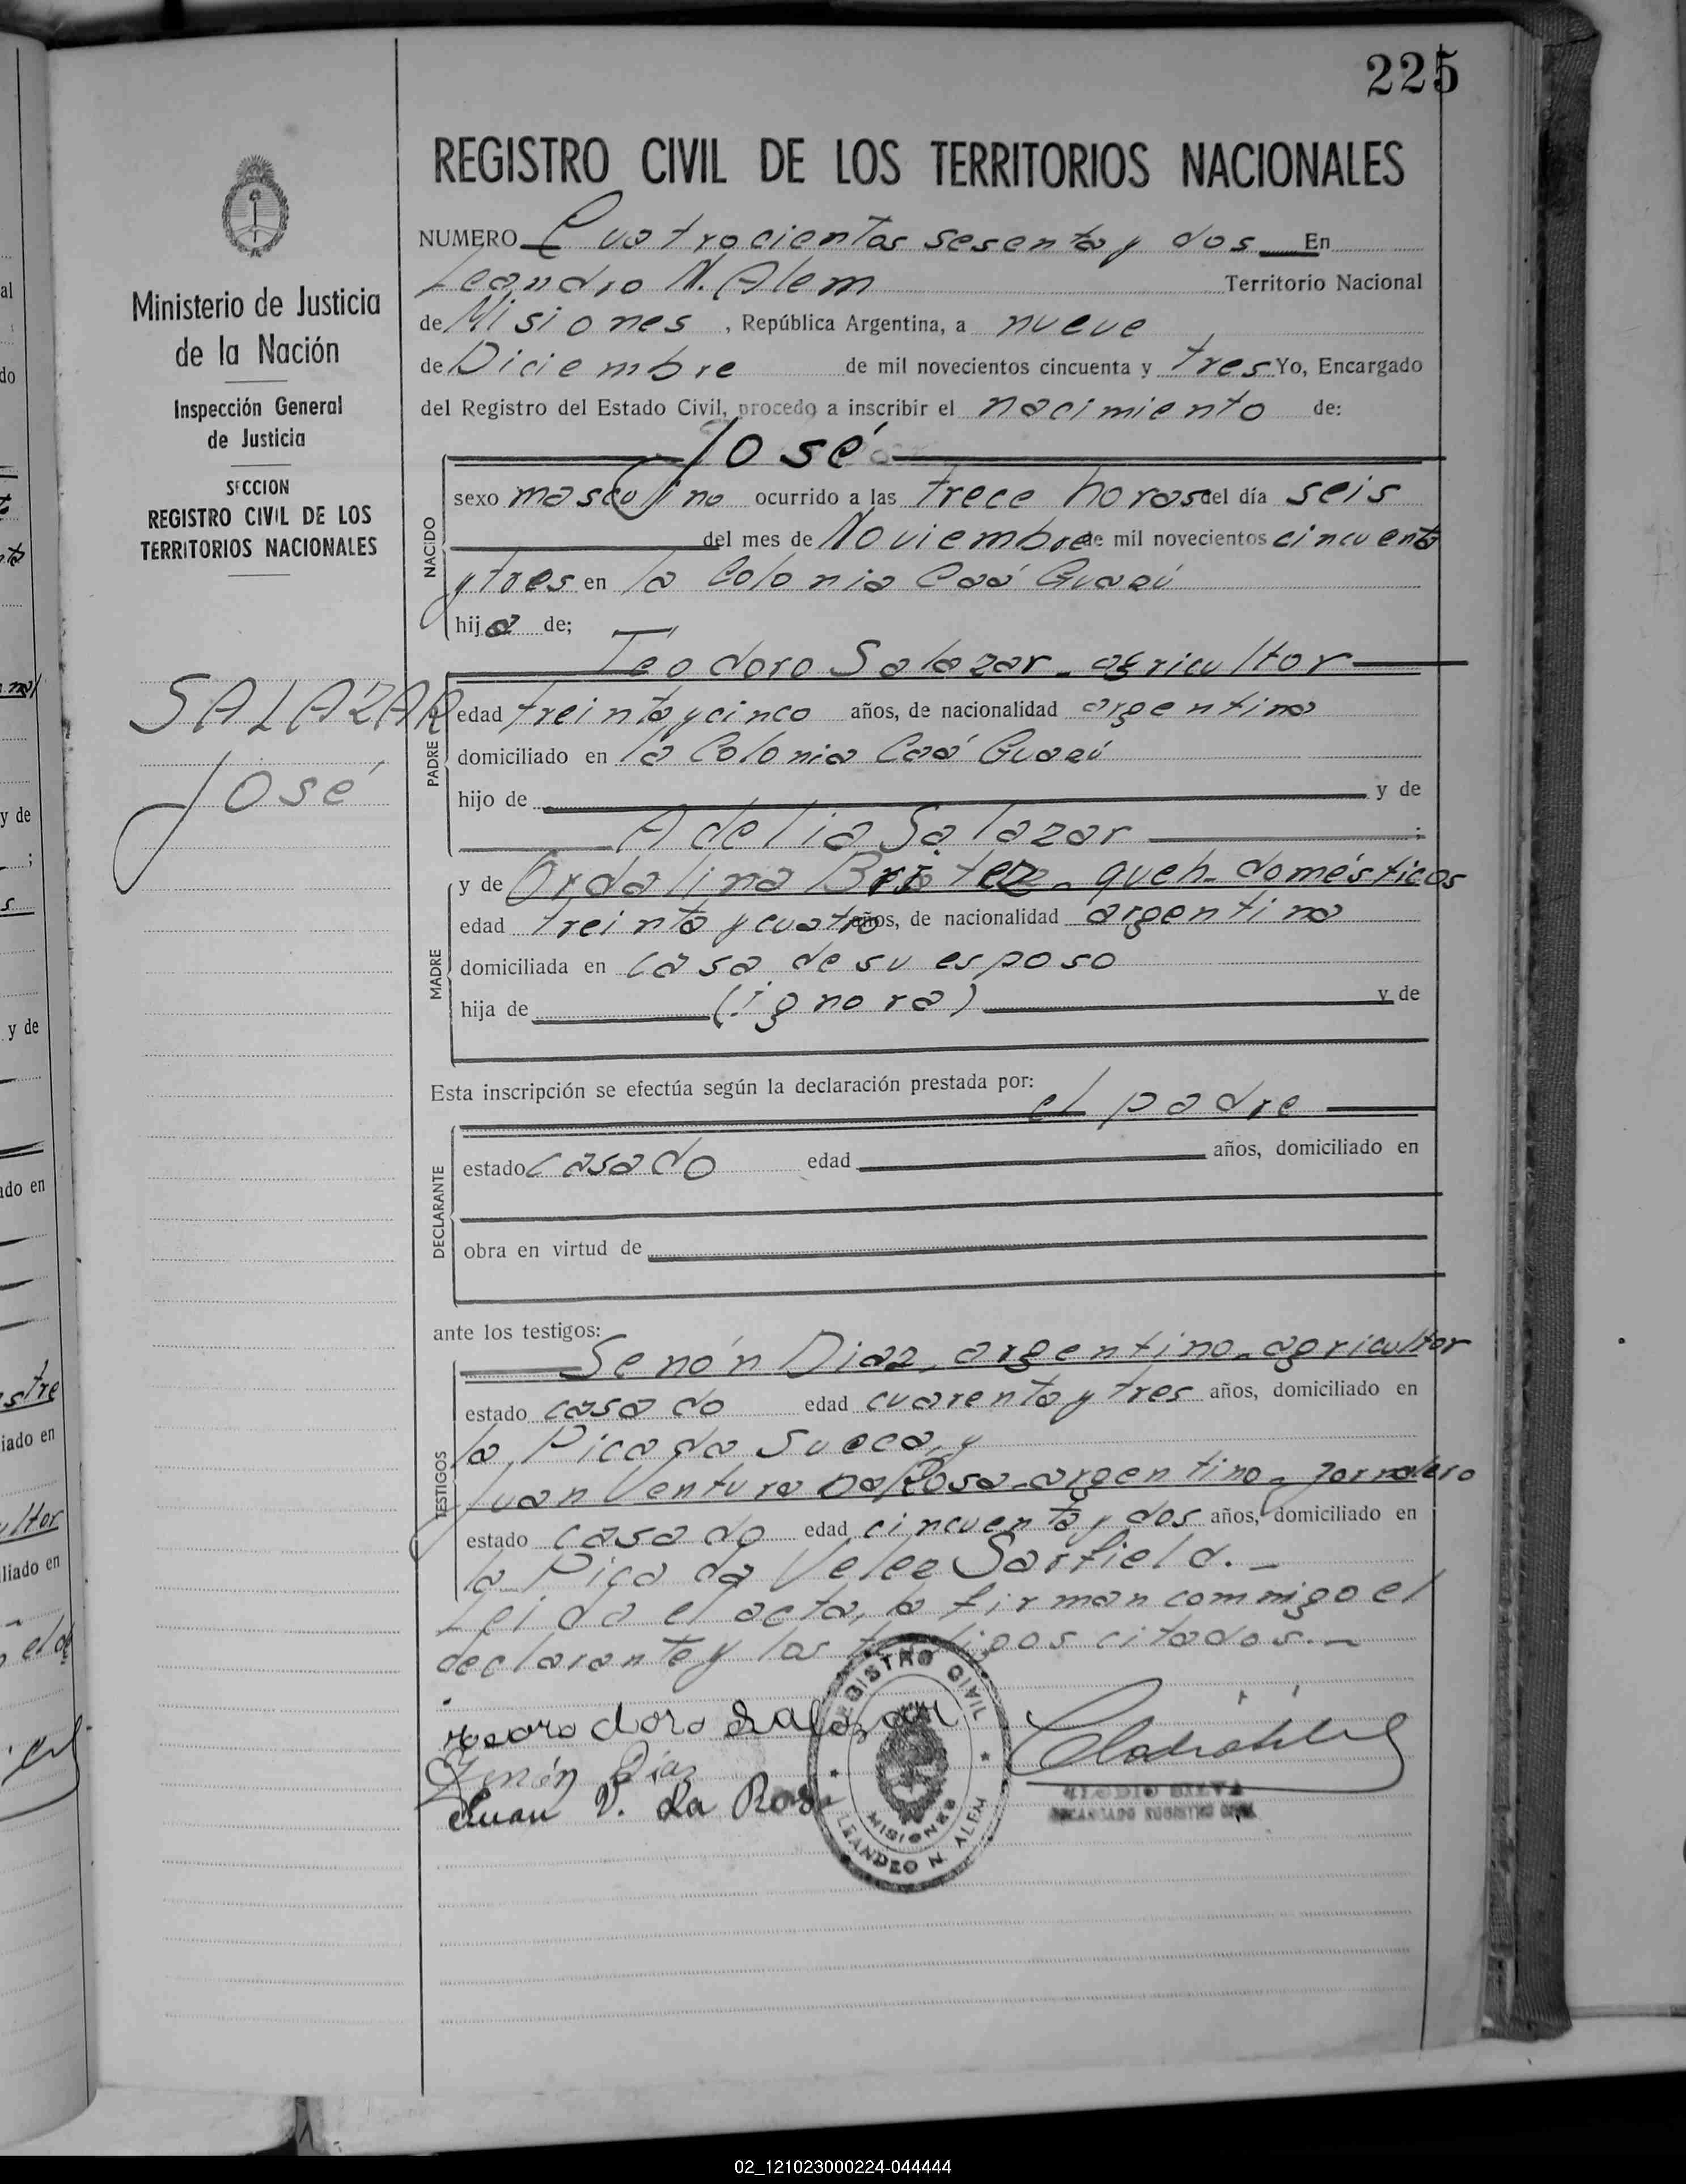 225
REGISTRO CIVIL DE LOS TERRITORIOS NACIONALES
Ministerio de Justicia
de la Nación
Inspección General
de Justicia
SECCION
REGISTRO CIVIL DE LOS
TERRITORIOS NACIONALES
SALAZAR
José
NUMERO Cuatrocientos sesenta y dos En
Leandro N. Alem Territorio Nacional
de Misiones, República Argentina, a nueve
de Diciembre de mil novecientos cincuenta y tres Yo, Encargado
del Registro del Estado Civil, procedo a inscribir el nacimiento de:
José
NACIDO
sexo masculino ocurrido a las trece horas del día seis
del mes de Noviembre de mil novecientos cincuenta
y tres en la Colonia Caá Guazú
hijo de;
Teodoro Salazar - agricultor
PADRE
edad treinta y cinco años, de nacionalidad argentina
domiciliado en la Colonia Caá Guazú
hijo de y de
Adelia Salazar ;
MADRE
y de Ordalina Britez - queh. domésticos
edad treinta y cuatro años, de nacionalidad argentina
domiciliada en casa de su esposo
hija de (ignora) y de
Esta inscripción se efectúa según la declaración prestada por:
el padre
DECLARANTE
estado casado edad años, domiciliado en
obra en virtud de
ante los testigos:
Senón Diaz, argentino - agricultor
TESTIGOS
estado casado edad cuarenta y tres años, domiciliado en
la Picada Sueca, y
Juan Ventura Da Rosa - argentino - jornalero
estado casado edad cincuenta y dos años, domiciliado en
la Picada Velez Sarfield. -
Leida el acta, la firman conmigo el
declarante y los testigos citados. -
doro Salazar
Senón Diaz
Juan V. da Rosa
REGISTRO CIVIL
MISIONES
LEANDRO N. ALEM
ELODIO SILVA
ENCARGADO REGISTRO CIVIL
02_121023000224-044444